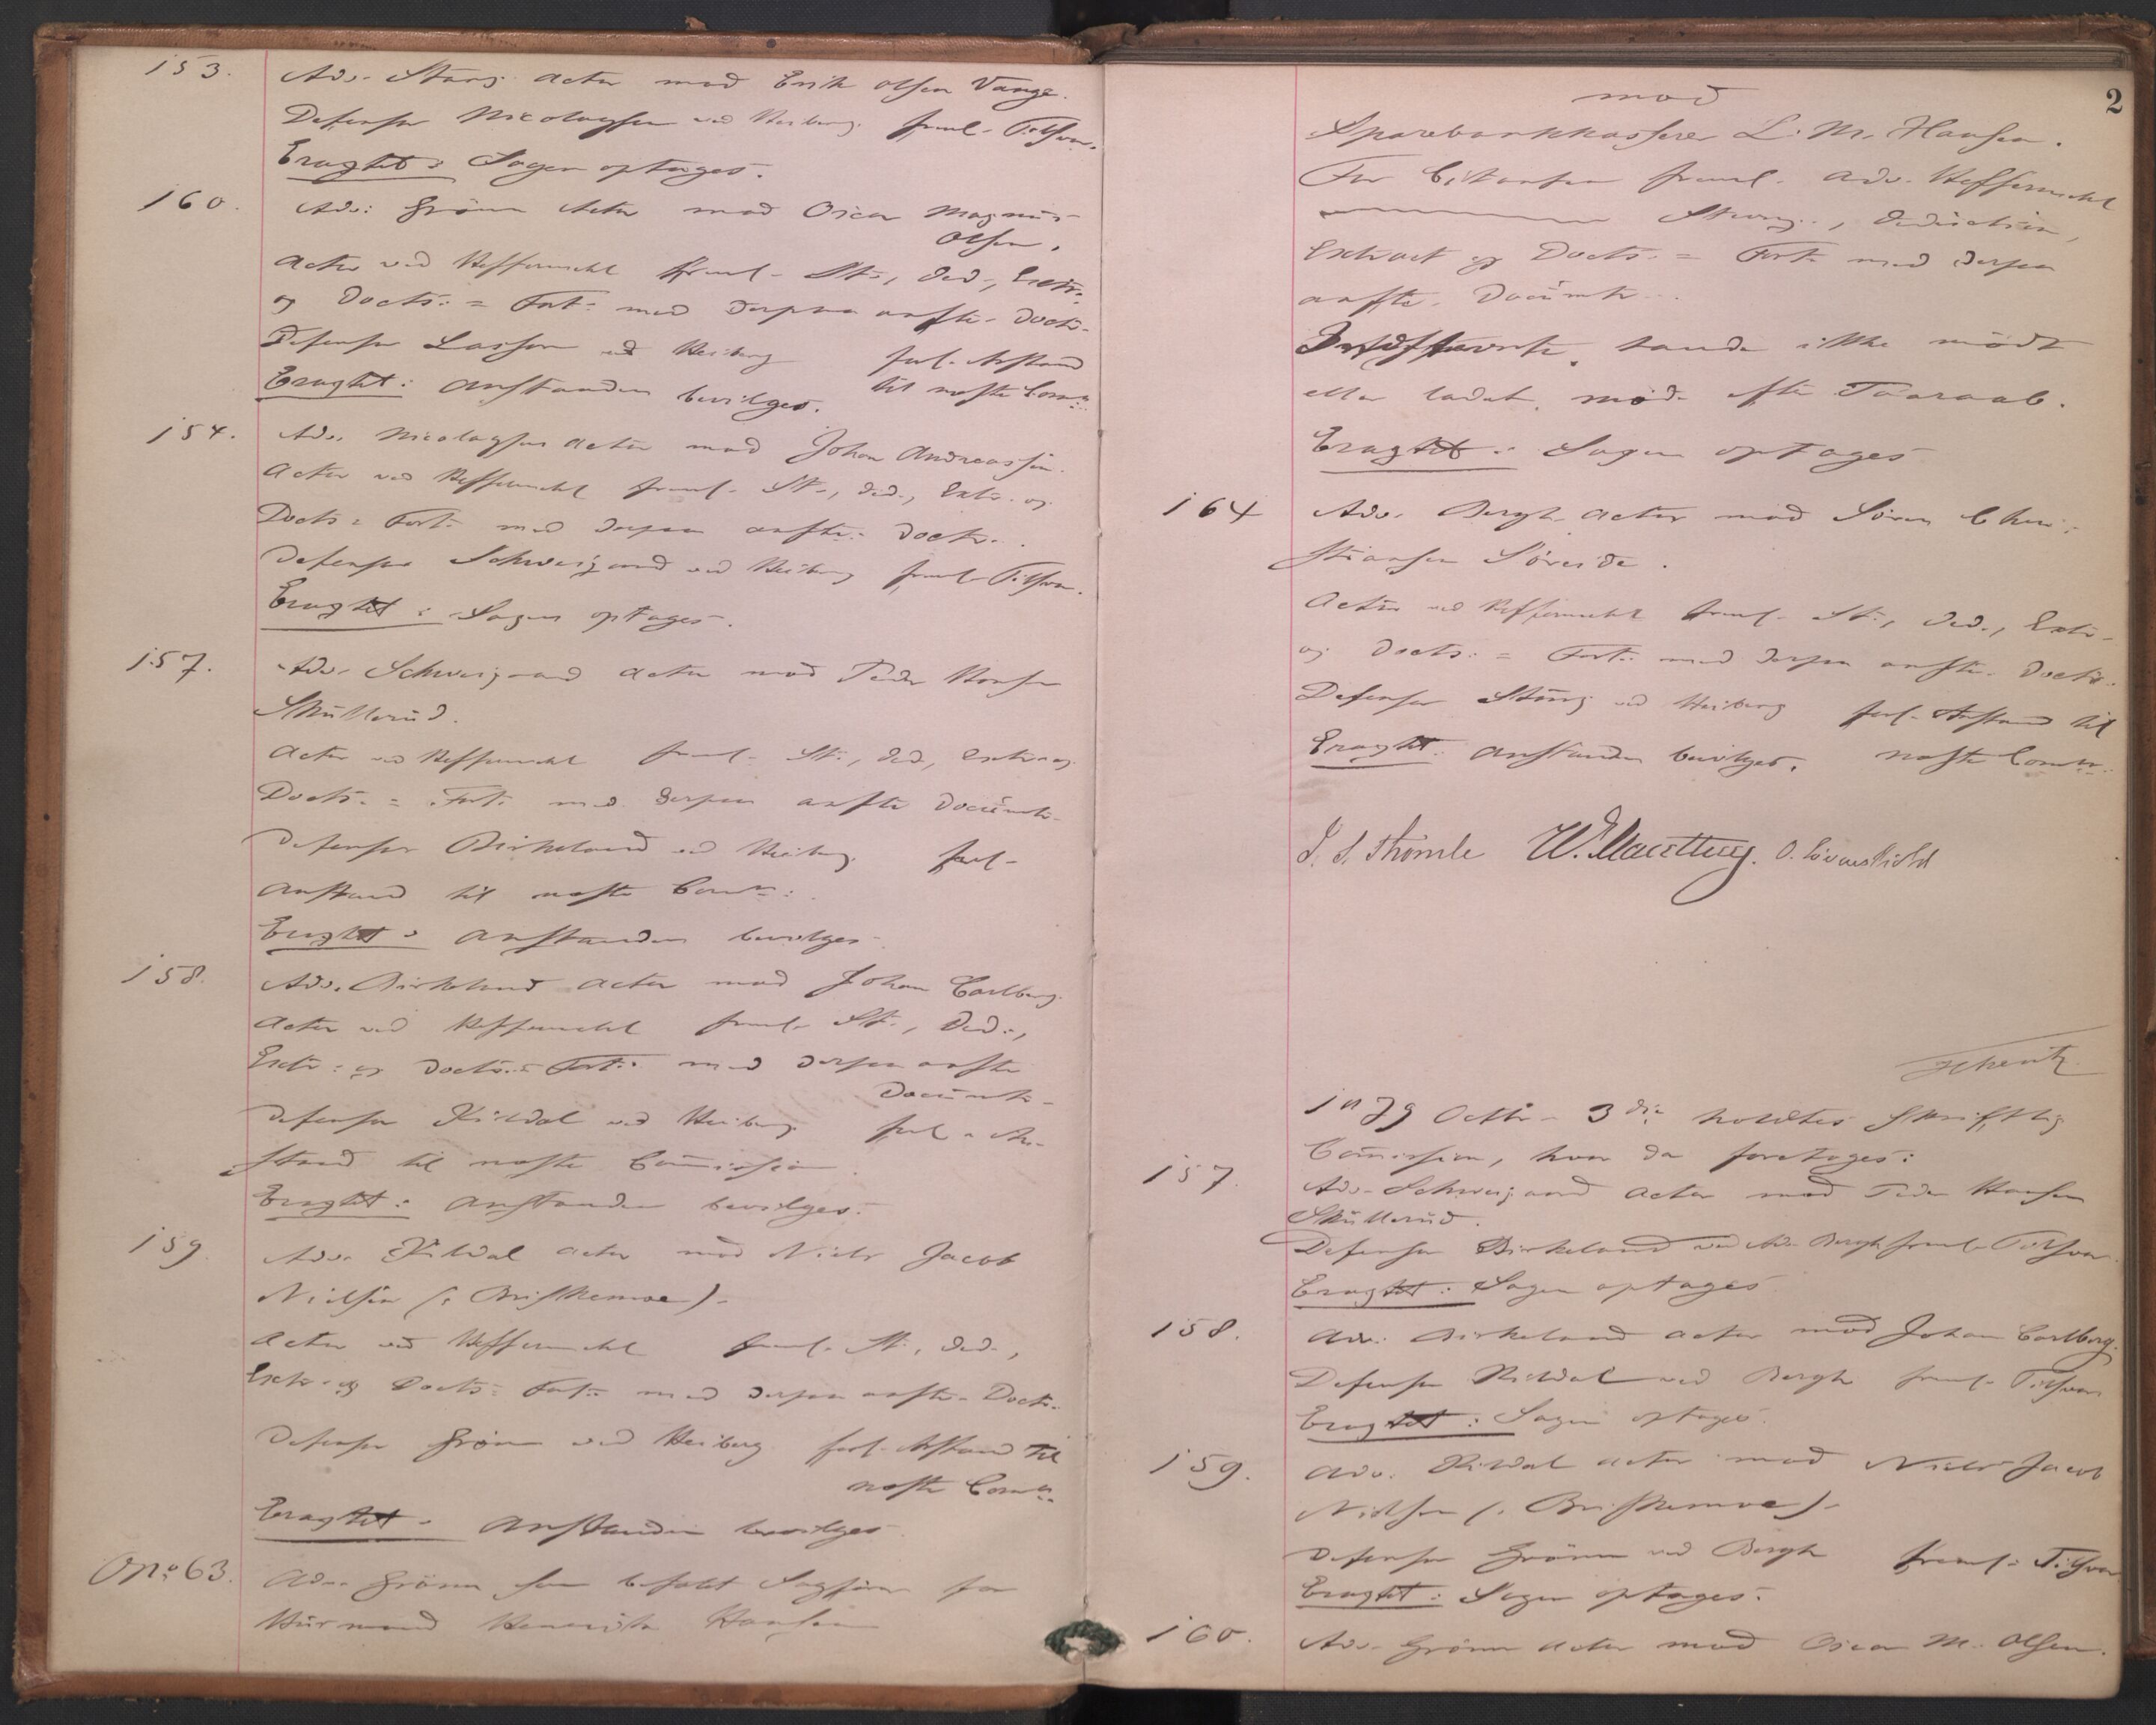 153. Adv. Stang Actor mod Erik Olsen Vange.
Defensor Nicolaysen ved Heiberg freml. Tilsvar.
Eragtet: Sagen optages.
160. Adv: Grönn Actor mod Oscar Magnus
Olsen.
Actor ved Heffermehl freml. St., Ded., Extr.
og Docts: = Fort: med derpaa anførte Doctr.
Defensor Lasson ved Heiberg forl. Anstand
til næste Comn:
Eragtet: Anstanden bevilges.
154. Adv. Nicolaysen Actor mod Johan Andreassen.
Actor ved Heffermehl freml. St., Ded., Extr. og
Docts = Fort. med derpaa anførte Doctr.
Defensor Schweigaard ved Heiberg freml. Tilsvar.
Eragtet: Sagen optages.
157. Adv. Schweigaard Actor mod Peder Hansen
Skullerud.
Actor ved Heffermehl freml. St., Ded, Extr. og
Docts. = Fort. med derpaa anførte Documtr.
Defensor Birkeland ved Heiberg forl.
Anstand til næste Comn:
Eragtet: Anstanden bevilges.
158. Adv. Birkeland Actor mod Johan Carlberg.
Actor ved Heffermehl freml. St., Ded.,
Extr: og Docts: = Fort: med derpaa anførte
Documtr.
Defensor Kildal ved Heiberg forl. An-
stand til næste Commission.
Eragtet: Anstanden bevilges.
159. Adv. Kildal Actor mod Niels Jacob
Nielsen (: Briskemoe).
Actor ved Heffermehl freml. St., Ded.,
Extr. og Docts: Fort: med derpaa anførte Doctr.
Defensor Grönn ved Heiberg forl. Anstand til
næste Comn:
Eragtet: Anstanden bevilges.
Opno 63. Adv. Grönn som befalet Sagförer for
Huusmand Hansen
2
mod
Sparebankkasserer L. M. Hansen.
For Citanten freml. Adv. Heffermehl
Stevng., Deduction,
Extract og Docts. = Fort. med derpaa
anførte Documtr.
havde ikke mödt
eller ladet möde efter Paaraab.
Eragtet: Sagen optages
164 Adv. Bergh Actor mod Sören Chri-
stiansen Söreide.
Actor ved Heffermehl freml. St., Ded., Extr.
og Docts. = Fort: med derpaa anførte Doctr.
Defensor Stang ved Heiberg forl. Anstand til
næste Comn:
Eragtet: Anstanden bevilges.
J. S. Thomle W. E. Maartmann. O. Lövenskiold
Scheutz.
1879 Octbr. 3die holdtes Skriftlig
Commission, hvor da foretoges:
157. Adv. Schweigaard Actor mod Peder Hansen
Skullerud.
Defensor Birkeland ved Adv. Bergh freml. Tilsvar.
Eragtet: Sagen optages
158. Adv. Birkeland Actor mod Johan Carlberg.
Defensor Kildal ved Bergh freml. Tilsvar
Eragtet: Sagen optages.
159. Adv. Kildal Actor mod Niels Jacob
Nielsen (: Briskemoe).
Defensor Grönn ved Bergh freml: Tilsvar
Eragtet: Sagen optages.
160. Adv. Grönn Actor mod Oscar M. Olsen.